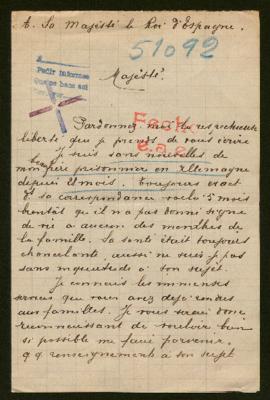 A. Sa Majesté le Roi d'Espagne.
51092
Pedir informes
Majesté.
Pardonnez moi la respectueuse
liberté que je prends de vous écrire
Je suis sans nouvelles de
mon beau frère prisonnier en Allemagne
depuis mois. Toujours exact
à sa correspondance voilà 5 mois
bientôt qu'il n'a pas donné signe
de vie à aucun des membres de
la famille. Sa santé était toujours
chancelante, aussi ne suis je pas
sans inquiétude à son sujet.
Je connais les immenses
services que vous avez déjà rendus
aux familles. Je vous serai donc
reconnaissant de vouloir bien
si possible me faire parvenir
qq renseignements à son sujet